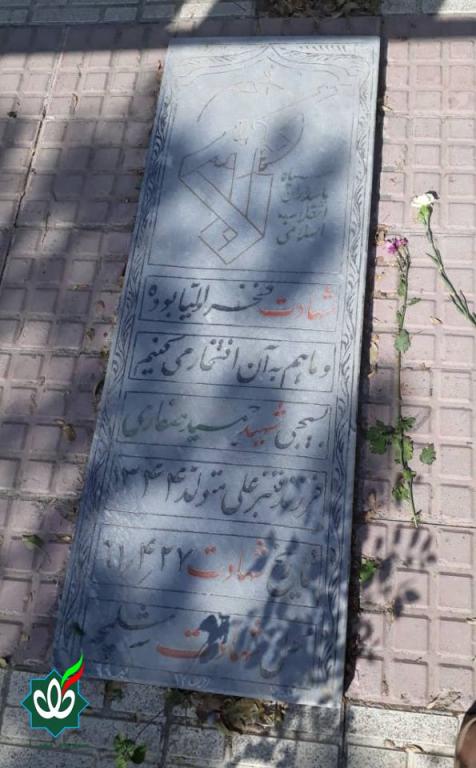 سپاه
پاسداران
انقلاب
اسلامی
شهادت مفخر اولیا بوده
و ما هم به آن افتخار می کنیم
بسیجی شهید حمید صفاری
فرزند قنبرعلی متولد ۱۳۴۴
تاریخ شهادت ۶۱/۴/۲۷
شهادت شلمچه